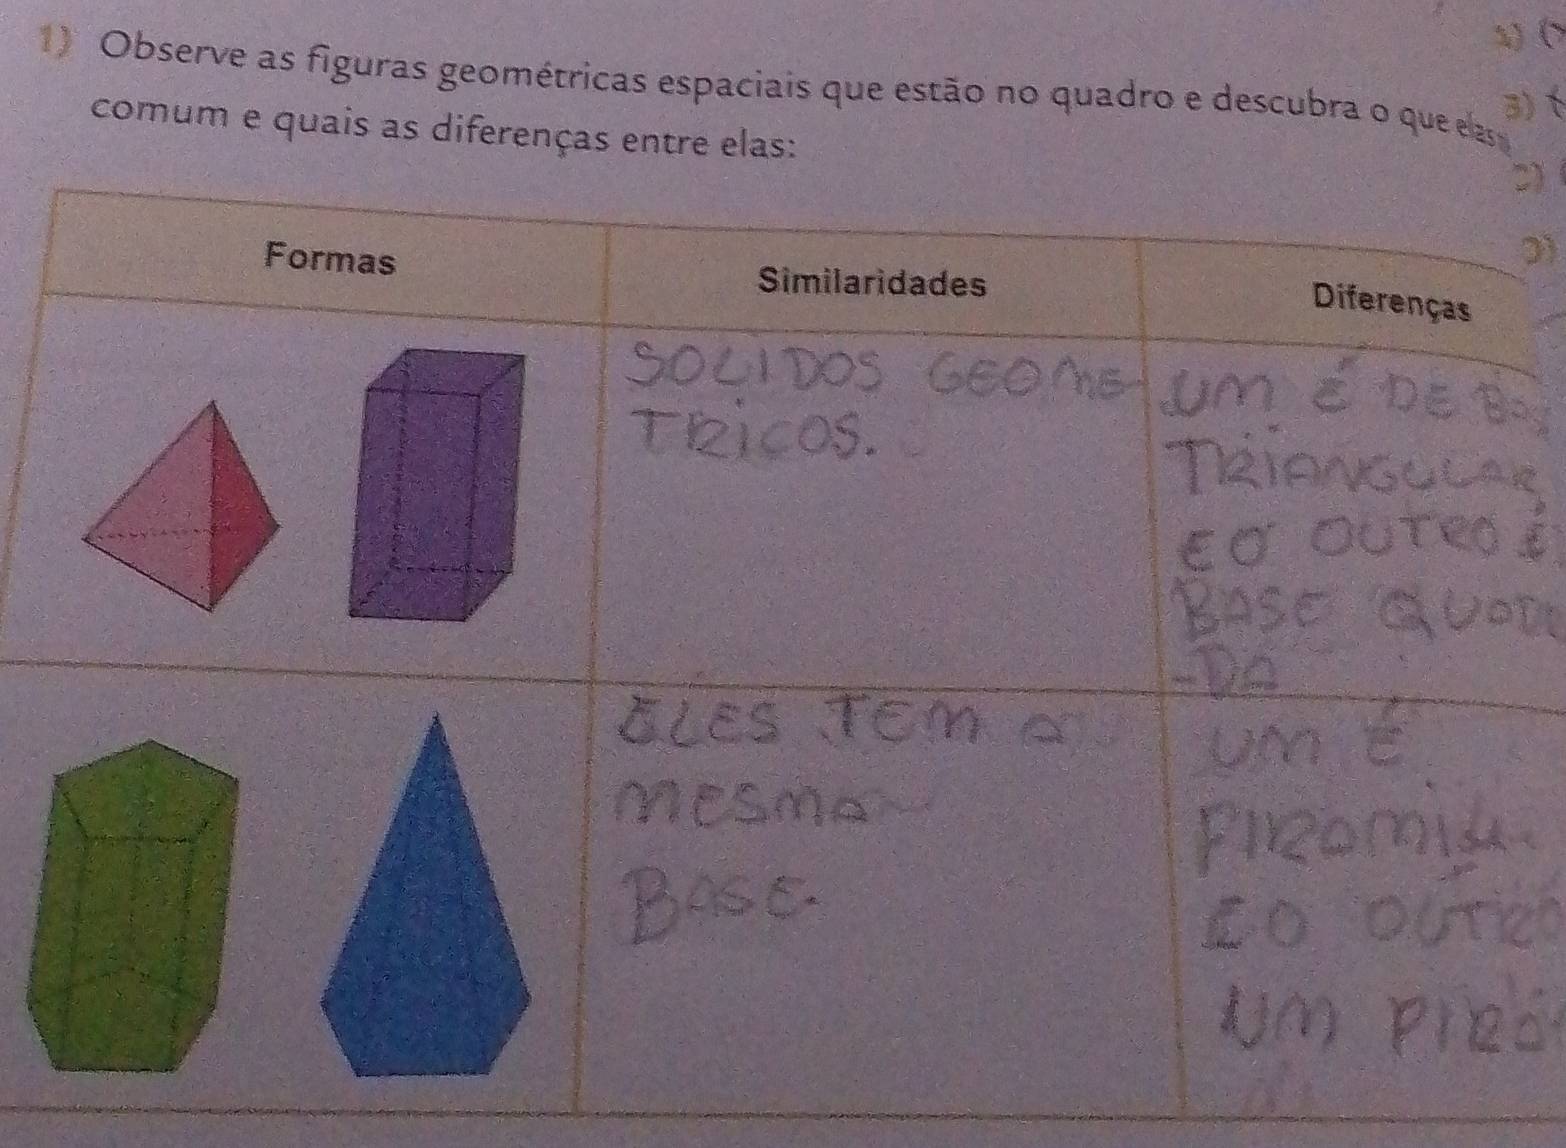 1) Observe as figuras geométricas espaciais que estão no quadro e descubra o que elas
comum e quais as diferenças entre elas:
3)
Formas
Similaridades
Diferenças
SOLIDOS GEOME
TRICOS.
UM É DE
TRIANGULAR
E O OUTRO É
BASE
-DA
ELES TEM A
MESMA
BASE.
UM É
E O OUTRO
UM